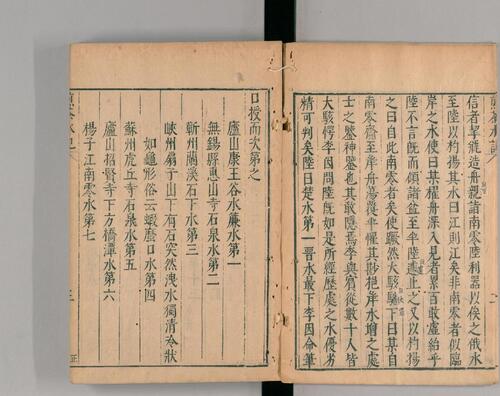 信者挈瓶造舟親詣南零陸利器以俟之俄水
至陸以杓揚其水曰江則江矣非南零者似臨
岸之水使曰其櫂舟深入見者累百敢虛紿乎
陸不言既而傾諸盆至半陸遽止之又以杓揚
之曰自此南零者矣使蹶然大駭馳下曰某自
南零齎至岸舟蕩覆半懼其尠挹岸水增之處
士之鑒神鑒也其敢隱焉李與賓從數十人皆
大駭愕李因問陸既如是所經歷處之水優劣
精可判矣陸曰楚水第一晉水最下李因命筆
口授而次第之
廬山康王谷水廉水第一
無錫縣惠山寺石泉水第二
蘄州蘭溪石下水第三
峽州扇子山下有石突然洩水獨清冷狀
如龜形俗云蝦䗫口水第四
蘇州虎丘寺石泉水第五
廬山招賢寺下方橋潭水第六
楊子江南零水第七